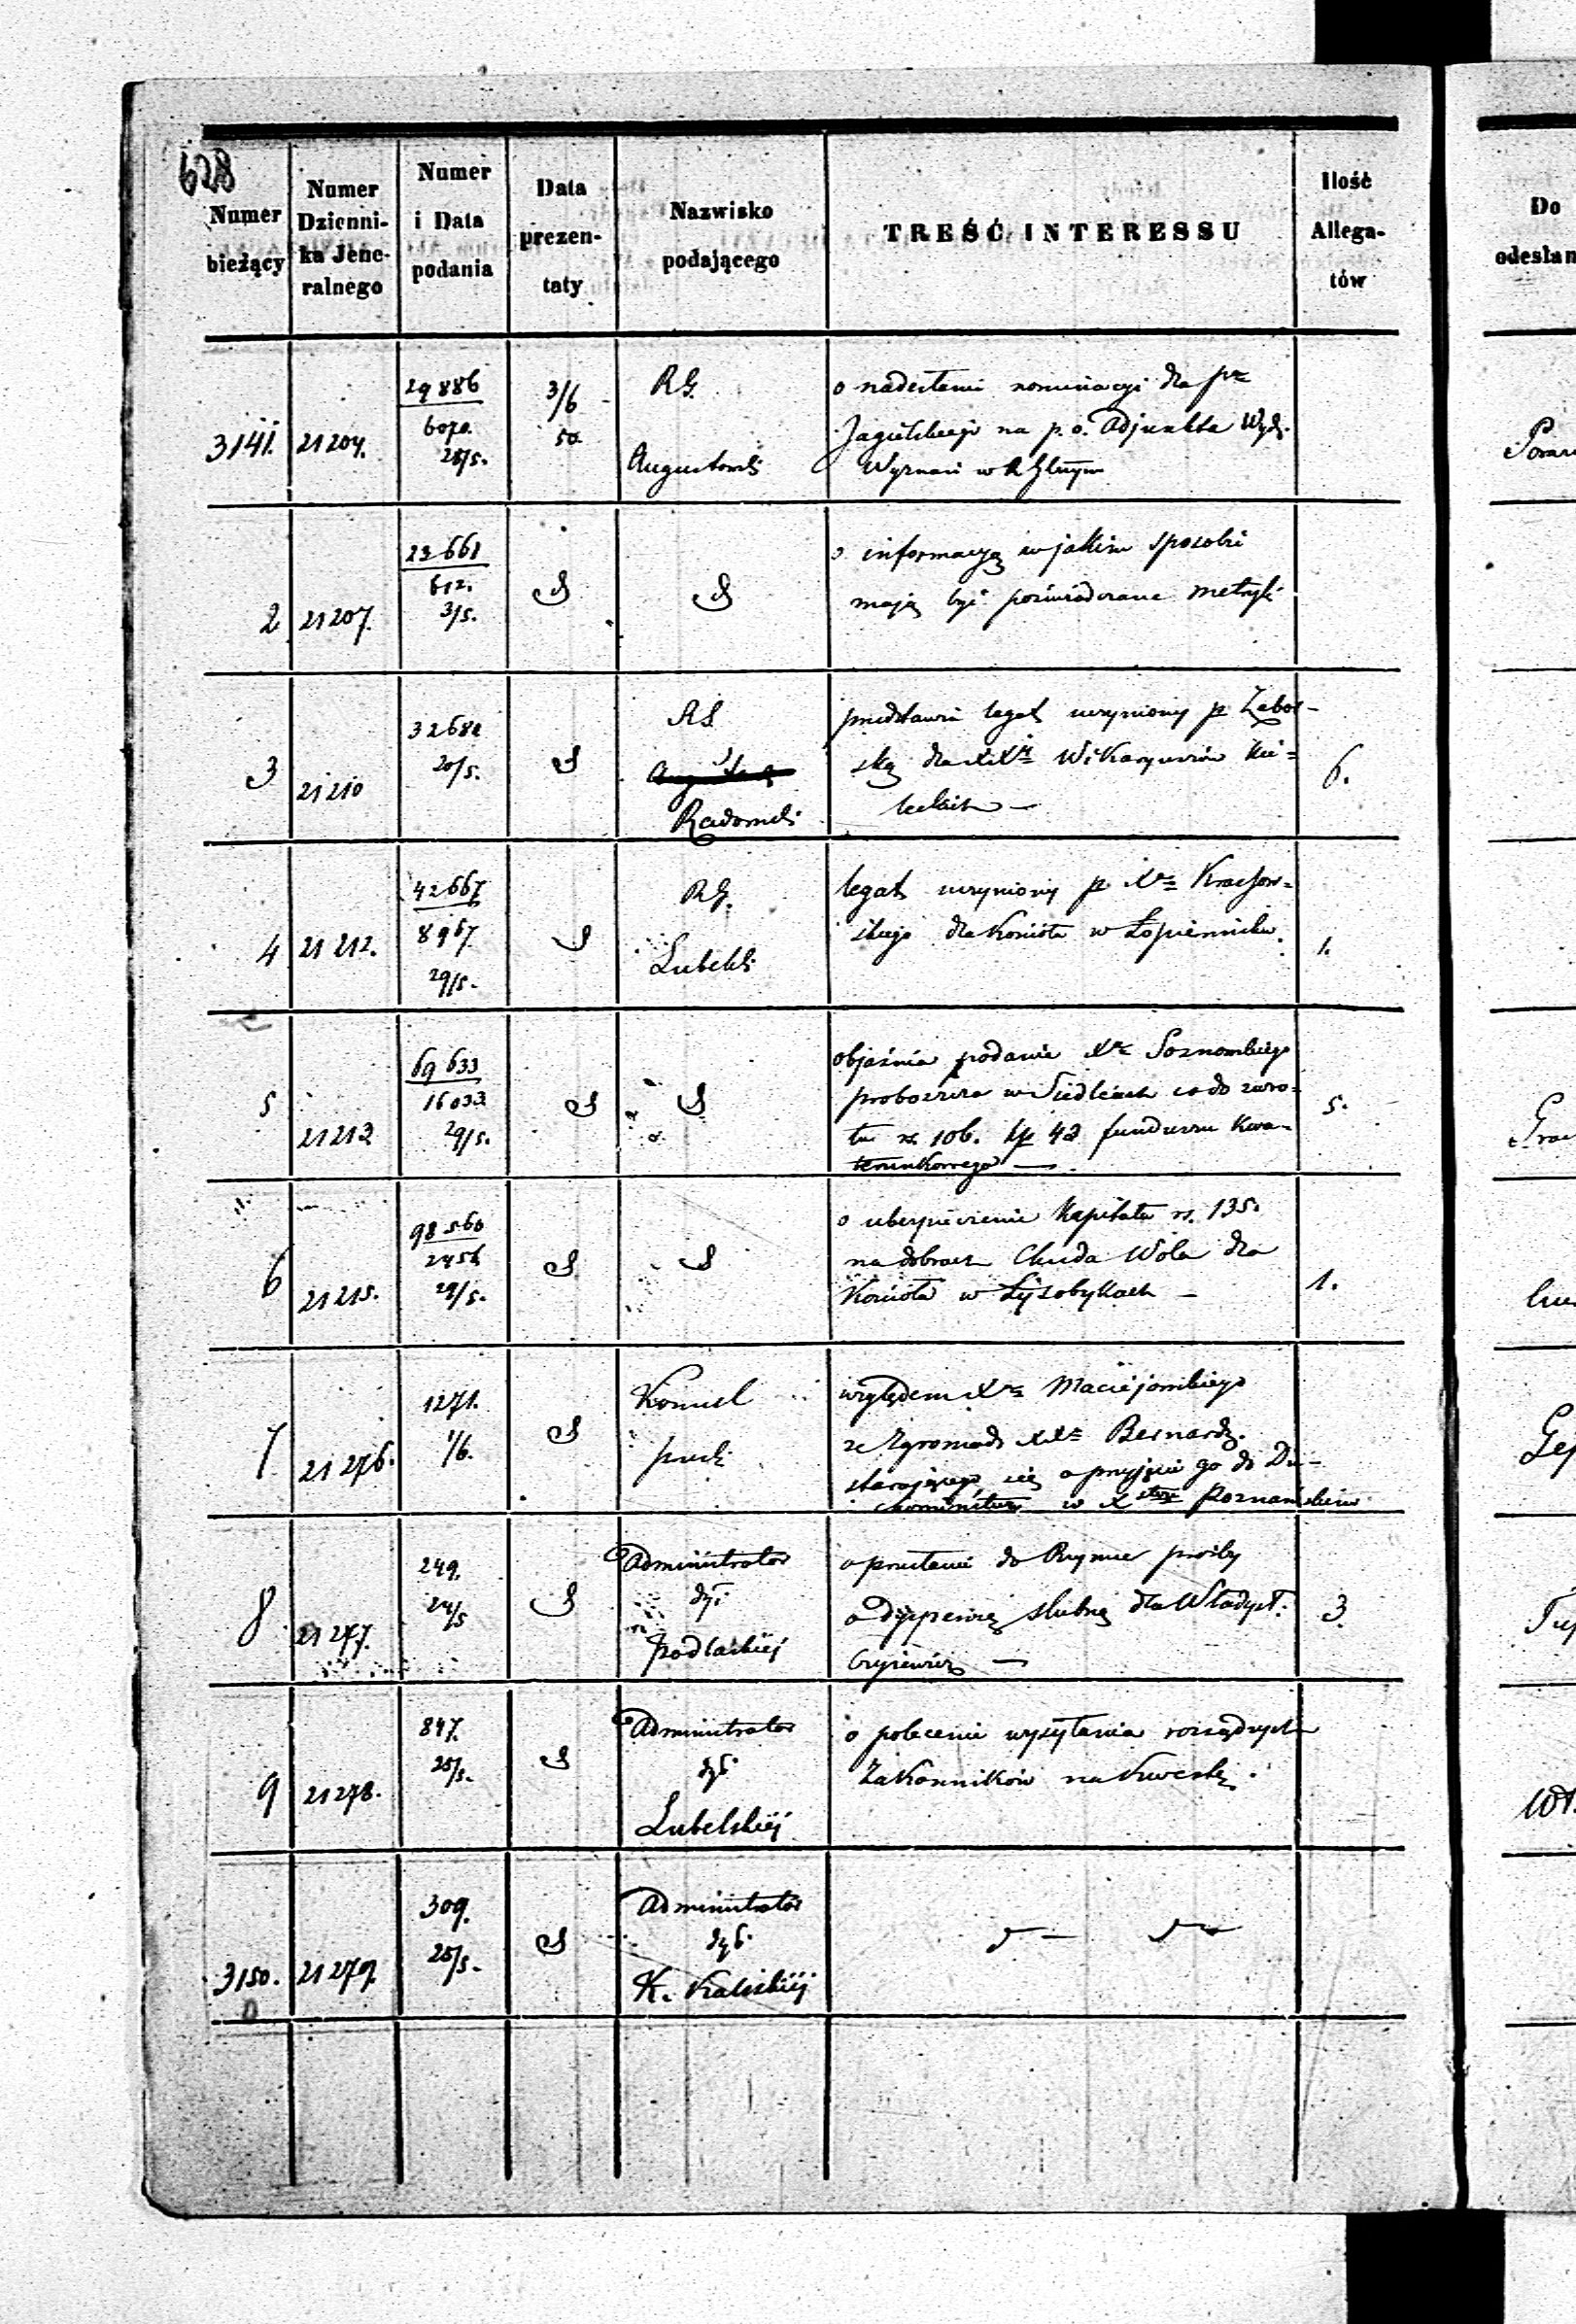 628
Numer bieżący
Numer Dzienni- ka Jene- ralnego
Numer i Data podania
Data prezen- taty
Nazwisko podającego
TREŚĆ INTERESSU
Ilość Allega- tów
Do odesłan
3141. 21204.
29886
6070.
28/5.
3/6
50.
RG.
Augustowski
o nadesłanie nominacyi dla pna
Jagielskiego na p. o. Adjunkta Wydz.
Wyznań w R Głnym
2 21207.
23661
612.
3/5.
o informacyą w jakim sposobie
mają być poświadczane metryki
3 21210
32681
20/5.
Radomski
przedstawia legat uczyniony p Zabor-
ską dla XXży Wikaryuszów Kie=
leckich —
6.
4 21212.
42667
8967
29/5.
RG.
Lubelski
legat uczyniony p Xa Krassow=
skiego dla Kościoła w Łopienniku.
1.
5 21213
69633
16033
29/5.
objaśnia podanie Xa Soznowskiego
proboszcza w Siedlcach co do zwro=
tu rs. 106. kp 42 funduszu kwa=
terunkowego —
5.
6 21215.
98560
2456
29/5.
o ubezpieczenie Kapitału rs. 135.
na dobrach Chuda Wola dla
Kościoła w Łysobykach —
1.
7 21276.
1271.
1/6.
Konsul
pruski
względem Xa Maciejowskiego
ze Zgromadz XXy Bernardy.
starającego się o przyjęcie go do Du-
chowieństwa w Xstwie Poznańskiem
8 21277.
249.
24/5
Administrator
dyi
podlaskiej
o przesłanie do Rzymu prośby
o dyspensę ślubną dla Władysł.
3
9 21278.
847.
25/5.
Administrator
dyc.
Lubelskiej
o polecenie wysyłania rozsądnych
Zakonników na kwestę.
3150. 21279.
309.
25/5.
Administrator
dyc.
K. Kaliskiej